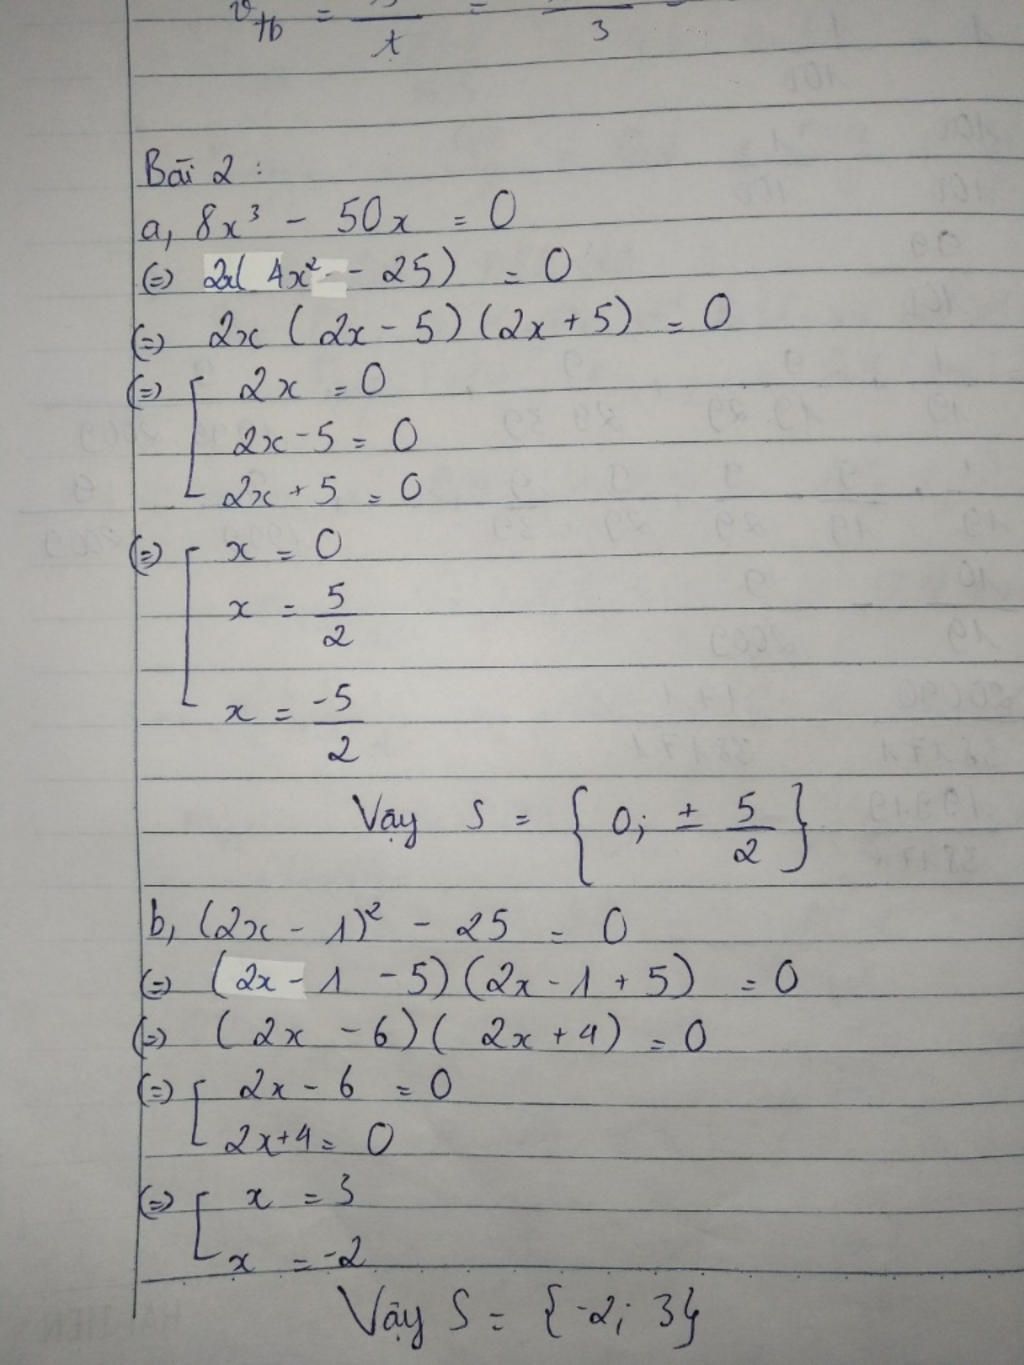 v_tb = /t = /3
Bài 2 :
a, 8x³ - 50x = 0
(=) 2x( 4x² - - 25) = 0
(=) 2x ( 2x - 5) (2x + 5) = 0
(=) [ 2x = 0
2x - 5 = 0
2x + 5 = 0
(=) [ x = 0
x = 5/2
x = -5/2
Vậy S = { 0; ± 5/2 }
b, (2x - 1)² - 25 = 0
(=) (2x - 1 - 5) (2x - 1 + 5) = 0
(=) ( 2x - 6) ( 2x + 4) = 0
(=) [ 2x - 6 = 0
2x + 4 = 0
(=) [ x = 3
x = -2
Vậy S = {-2; 3}